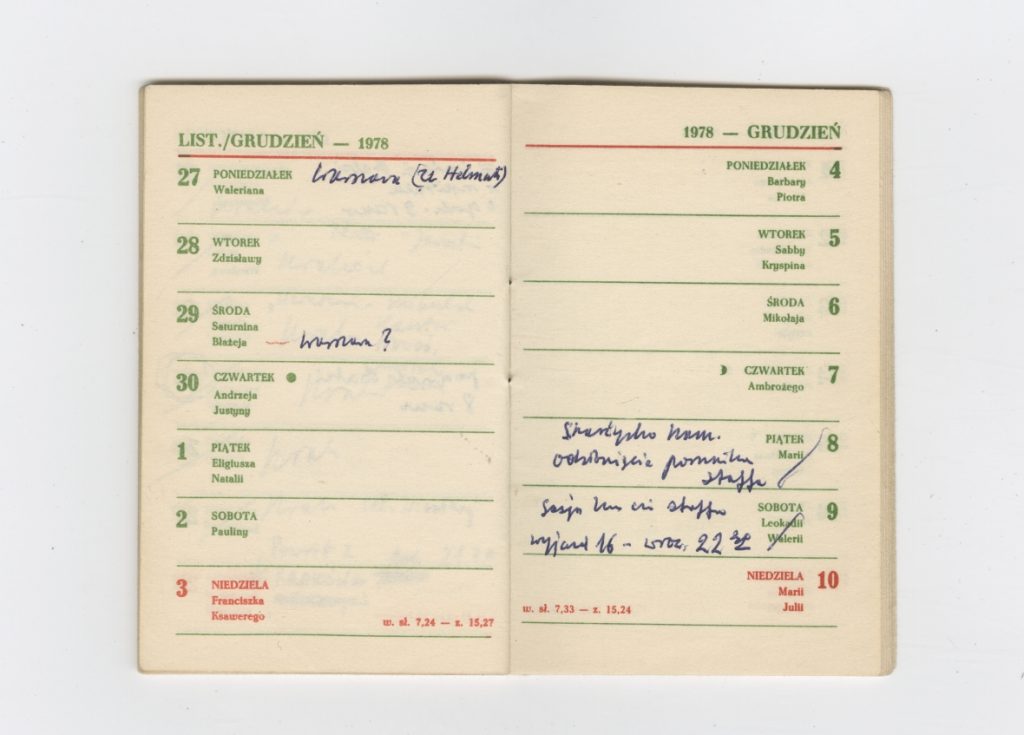 LIST./GRUDZIEŃ — 1978
27 PONIEDZIAŁEK Warszawa
Waleriana
28 WTOREK
Zdzisławy
29 ŚRODA
Saturnina
Błażeja — Warszawa?
30 CZWARTEK
Andrzeja
Justyny
1 PIĄTEK
Eligiusza
Natalii
2 SOBOTA
Pauliny
3 NIEDZIELA
Franciszka
Ksawerego
w. sł. 7,24 — z. 15,27
1978 — GRUDZIEŃ
PONIEDZIAŁEK 4
Barbary
Piotra
WTOREK 5
Sabby
Kryspina
ŚRODA 6
Mikołaja
CZWARTEK 7
Ambrożego
Skarżysko Kam.
PIĄTEK 8
odsłonięcie pomnika Marii
Staffa
Sesja ku czci Staffa SOBOTA 9
Leokadii
wyjazd 16 – wroc. 22 Walerii
NIEDZIELA 10
Marii
Julii
w. sł. 7,33 — z. 15,24